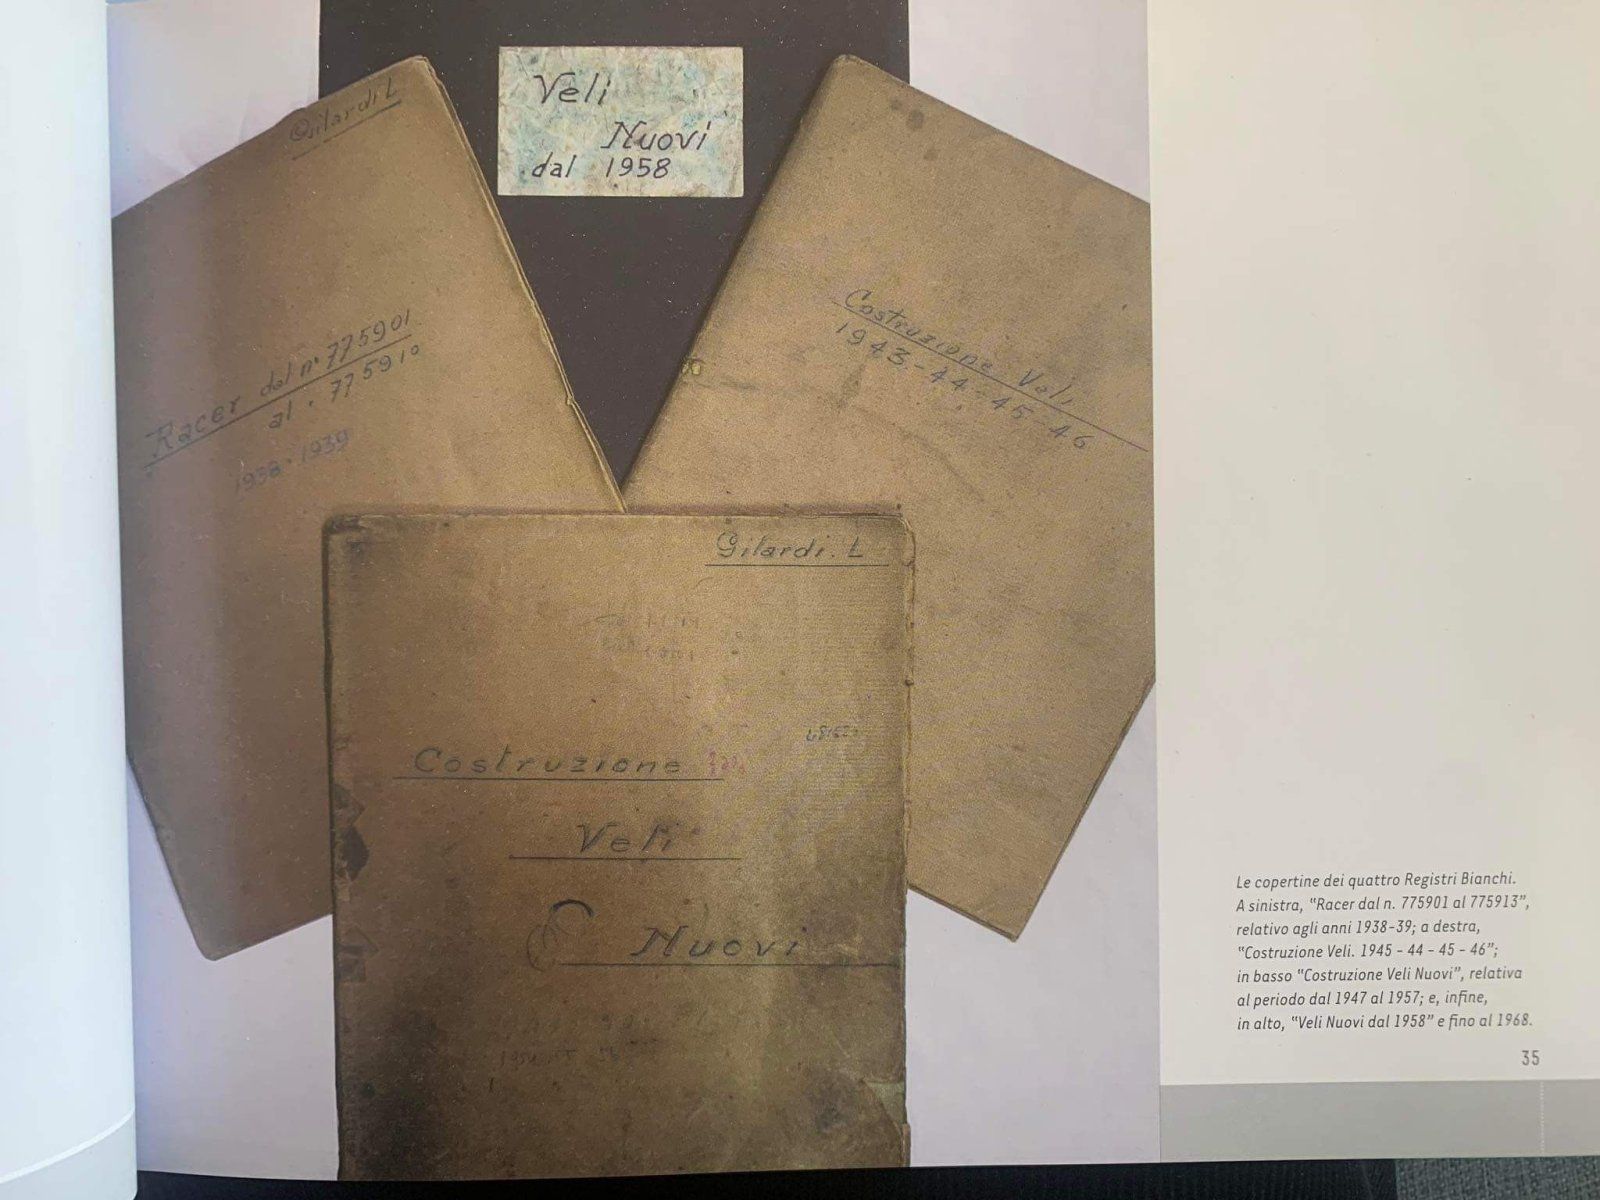 Gilardi L
Racer dal n° 775901
al · 775910
1938 · 1939
Veli
Nuovi
dal 1958
Costruzione Veli
1943-44-45-46
Gilardi. L
Costruzione
Veli
Nuovi
Le copertine dei quattro Registri Bianchi.
A sinistra, "Racer dal n. 775901 al 775913",
relativo agli anni 1938-39; a destra,
"Costruzione Veli. 1945 - 44 - 45 - 46";
in basso "Costruzione Veli Nuovi", relativa
al periodo dal 1947 al 1957; e, infine,
in alto, "Veli Nuovi dal 1958" e fino al 1968.
35